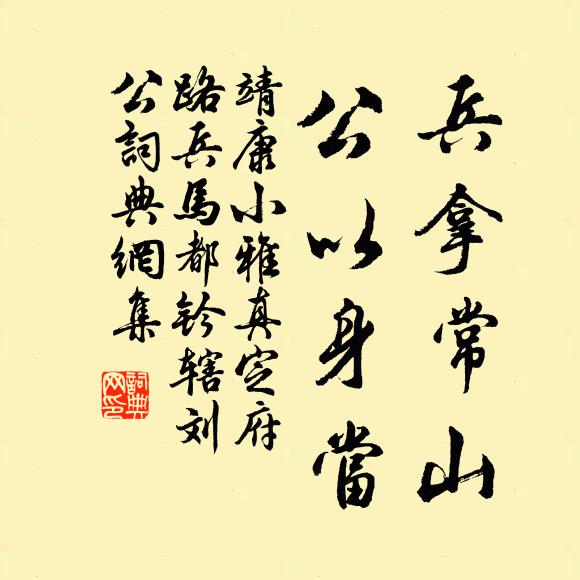 兵拿常山
公以身當
靖康小雅真定府
路兵馬都鈐轄刘
公詞典網集
詞典
网印